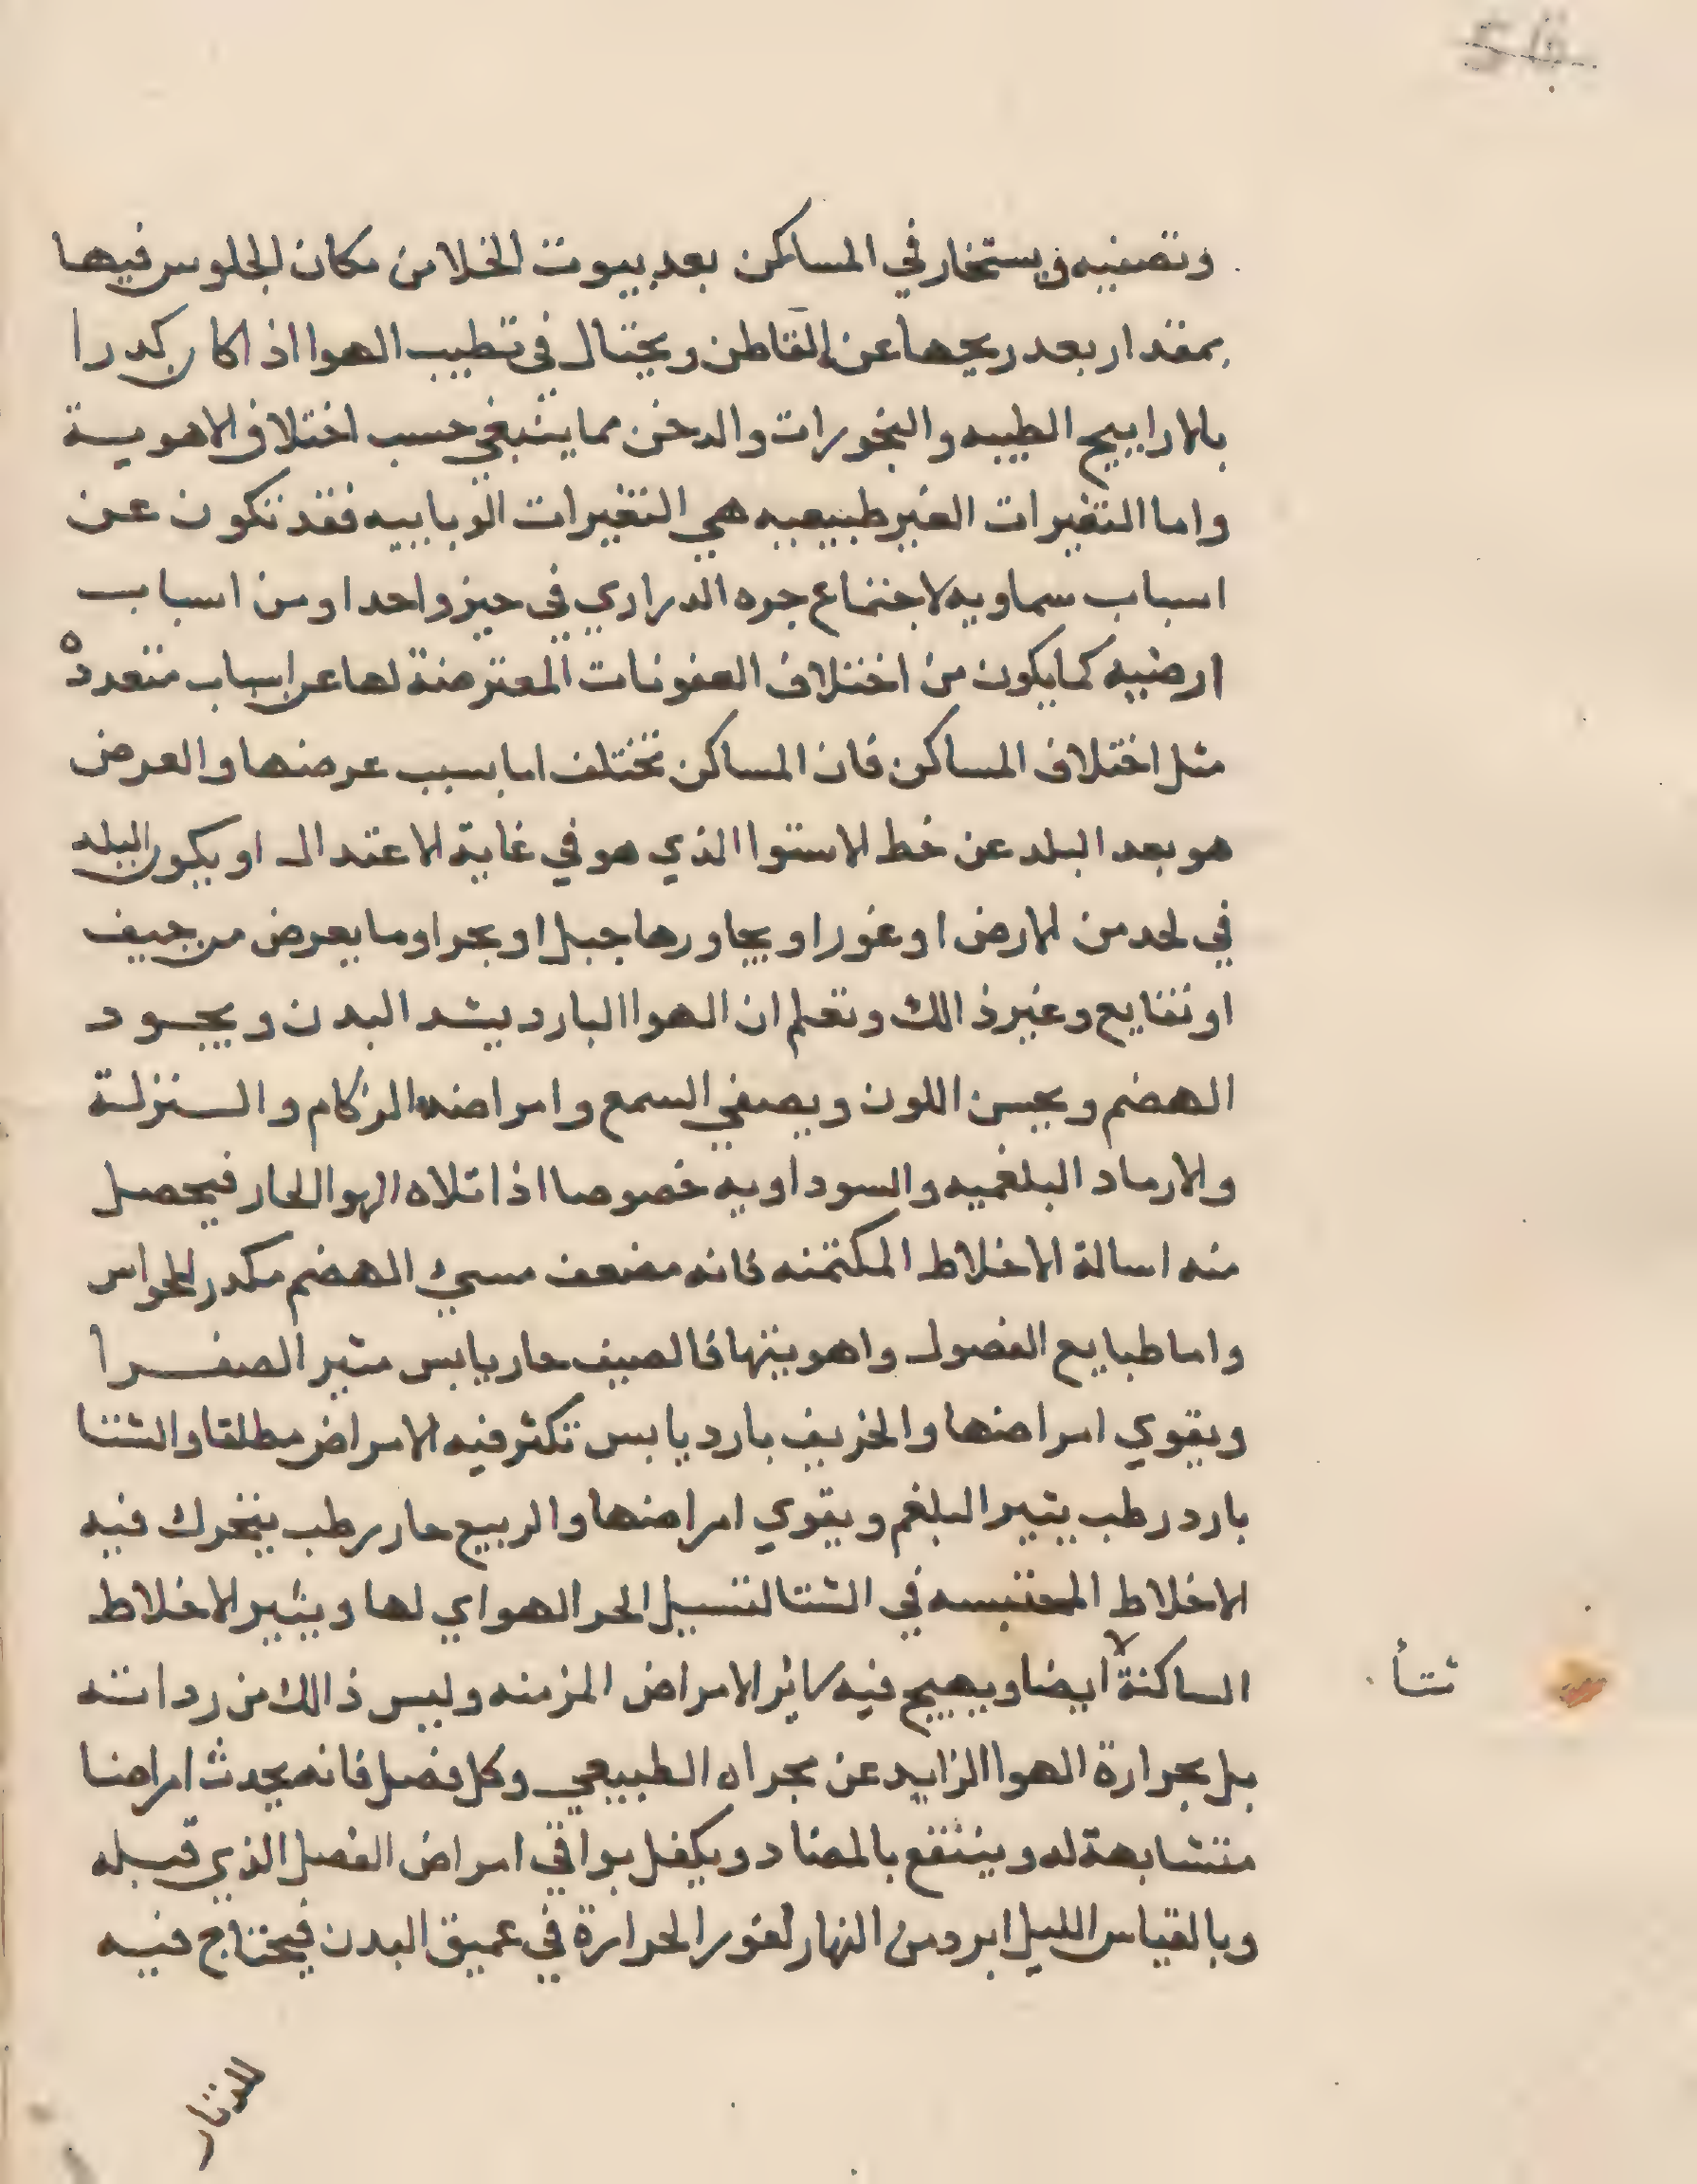 وتصفيه ويستخار في المساكن بعد بيوت الخلا من مكان الجلوس فيها
بمقدار بعد ريحها عن القاطن ويحتال في تطيب الهوا اذا كان كدرا
بالاراييح الطيبه والبخورات والدخن مما ينبغي حسب اختلاف الاهوية
واما التغيرات الغير طبيعيه هي التغيرات الوباييه فقد تكون عن
اسباب سماويه لاجتماع جره الدراري في حيز واحد او من اسباب
ارضيه كما يكون من اختلاف العفونات المعترضة لها عن اسباب متعدده
مثل اختلاف المساكن فان المساكن تختلف اما بسبب عرضها والعرض
هو بعد البلد عن خط الاستوا الذي هو في غاية الاعتدال او يكون البلد
في لحد من الارض او غورا ويجاورها جبل او بحر او ما يعرض من جيف
او نقايع وغير ذالك وتعلم ان الهوا البارد يشد البدن ويجود
الهضم ويحسن اللون ويصفي السمع وامراضه الزكام والنزلة
والارماد البلغميه والسوداويه خصوصا اذا تلاه الهوا الحار فيحصل
منه اسالة الاخلاط المكتمنه فانه مضعف مسيء الهضم مكدر للحواس
واما طبايع الفصول واهويتها فالصيف حار يابس مثير الصفرا
ويقوي امراضها والخريف بارد يابس تكثر فيه الامراض مطلقا والشتا
بارد رطب يثير البلغم ويقوي امراضها والربيع حار رطب يتحرك فيه
الاخلاط المحتبسه في الشتا لتسييل الحر الهواي لها ويثير الاخلاط
الساكنة ايضا ويهيج فيه سائر الامراض المزمنه وليس ذالك من رداته
شتأ
بل بحرارة الهوا الزايد عن مجراه الطبيعي وكل فصل فانه يحدث امراضا
متشابهة له وينتفع بالمضاد ويكفل بواقي امراض الفصل الذي قبله
وبالقياس الليل ابرد من النهار لغور الحرارة في عميق البدن فيحتاج فيه
للدثار